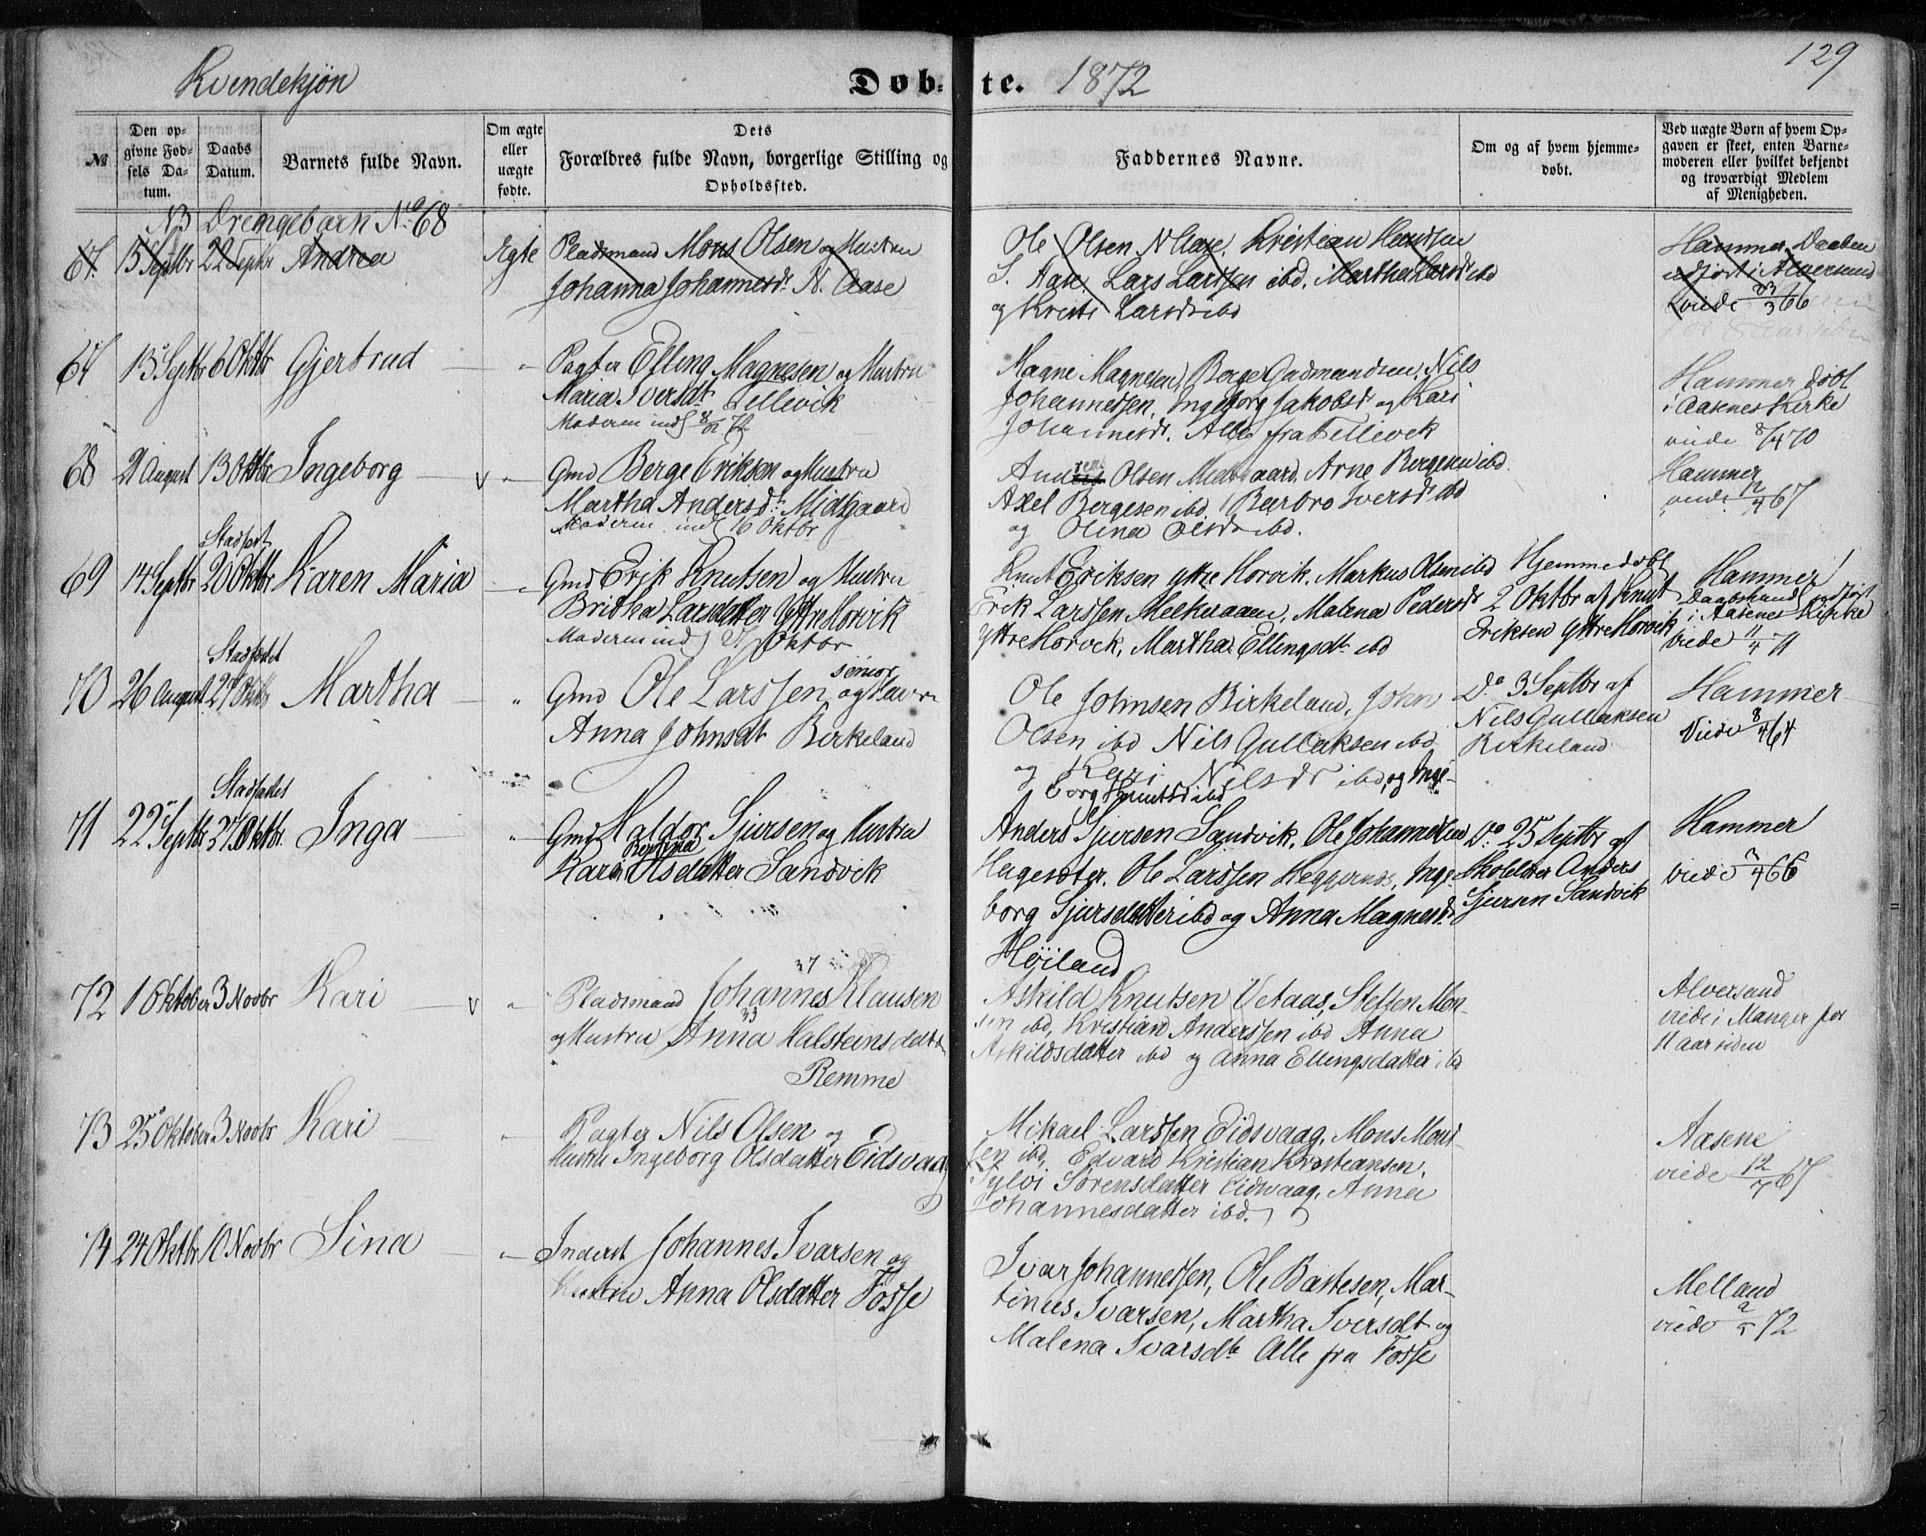 129
Kvindekjøn
Døbte. 1872
№
Den opgivne Fødsels Datum.
Daabs Datum.
Barnets fulde Navn.
Om ægte eller uægte fødte.
Dets
Forældres fulde Navn, borgerlige Stilling og Opholdssted.
Faddernes Navne.
Om og af hvem hjemmedøbt.
Ved uægte Børn af hvem Opgaven er skeet, enten Barnemoderen eller hvilket bekjendt og troværdigt Medlem af Menigheden.
NB Drengebarn No 68
67. 15 Septbr 22 Septbr Andrea Egte Pladsmand Mons Olsen og Hustru
Johanna Johannesdt N. Aase
Ole Olsen N Aase, Kristian
S. Aase, Lars Larssen ibd. Martha Larsdt ibd
og Kristi Larsdt ibd
Hammer Daaben
udført i Alversund
viede 66
67 15 Septbr 6 Oktbr Gjertrud " Pagter Elling Magnesen og Hustru
Maria Iversdt Tellevik
Moderen indl
Magne Magnesen, Berge Gudmundsen, Nils
Johannessen, Ingeborg Jakobsdt og Kari
Johannesdt. Alle fra Tellevik
Hammer døbt
i Aasenes Kirke
viede 8/4 70
68 21 August 13 Oktbr Ingeborg " Gmd Berge Eriksen og Hustru
Martha Andersdt Midtgaard
Moderen indl 16 Oktbr
Olsen Midtgaard, Arne Bergesen ibd
Axel Bergesen ibd, Barbro Iversdt ibd
og Olina Olsdt ibd.
Hammer
viede 12/4 67
69 14 Septbr Stadfæst 20 Oktbr Karen Maria " Gmd Erik Knutsen og Hustru
Britha Larsdatter Yttre Horvik
Moderen indl 27 Oktbr
Knut Eriksen Yttre Horvik, Markus Olsen ibd
Erik Larssen, Malena Pedersdt
Yttre Horvik, Martha Ellingsdt ibd
Hjemmedøbt
2 Oktbr af Knut
Eriksen Yttre Horvik
Hammer
Daabstadf udført
i Aasenes Kirke
viede 11/4 71
70 26 August Stadfæstet 27 Oktbr Martha " Gmd Ole Larssen senior og Hustru
Anna Johnsdt Birkeland
Ole Johnsen Birkeland, John
Olsen ibd Nils Gullaksen ibd
og Kari Nilsdt ibd, og Inge-
borg Knutsdt ibd
Do 3 Septbr af
Nils Gullaksen
Birkeland
Hammer
Viede 8/4 64
71 22 Septbr Stadfæstet 27 Oktbr. Inga " Gmd Haldor Sjursen og Hustru
Kari Bertina Olsdatter Sandvik
Anders Sjursen Sandvik, Ole Johannessen
Hagesæter, Ole Larssen Heggernes, Inge-
borg Sjursdatter ibd og Anna Magnesdt
Høiland
Do 25 Septbr af
Skoleholder Anders
Sjursen Sandvik
Hammer
viede 3/4 66
72 1 Oktober 3 Novbr Kari " Pladsmand Johannes 37 Klausen
og Hustru Anna 33 Halsteinsdatter
Remme
Askild Knutsen Vetaas, Steffen Mon-
sen ibd, Kristian Anderssen ibd Anna
Askildsdatter ibd og Anna Ellingsdatter ibd
Alversund
viede i Manger for
11 aar siden
73 25 Oktober 3 Novbr Kari " Pagter Nils Olsen og
Hustru Ingeborg Olsdatter Eidsvaag
Mikael Larssen Eidsvaag, Mons Mon-
sen ibd, Edvard Kristian Kristiansen,
Sylvi Sørensdatter Eidsvaag, Anna
Johannesdatter ibd.
Aasene
viede 12/7 67
74 24 Oktbr 10 Novbr Sina " Inderst Johannes Ivarsen og
Hustru Anna Olsdatter Fosse
Ivar Johannessen, Ole Bastesen, Mar-
tinus Ivarsen, Martha Iversdt og
Malena Ivarsdt. Alle fra Fosse
Melland
viede 2/5 72